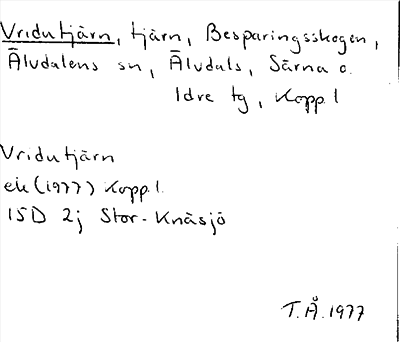 Vridutjärn, tjärn, Besparingsskogen,
Älvdalens sn, Älvdals, Särna o.
Idre tg, Kopp.l
Vridutjärn
ek (1977) Kopp.l.
15D 2j Stor-Knäsjö
T.Å. 1977